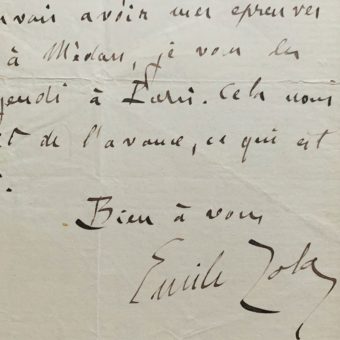 uvais avoir mes épreuves
à Médan, je vous les
jeudi à Paris. Cela nous
de l'avance, ce qui est
Bien à vous
Emile Zola